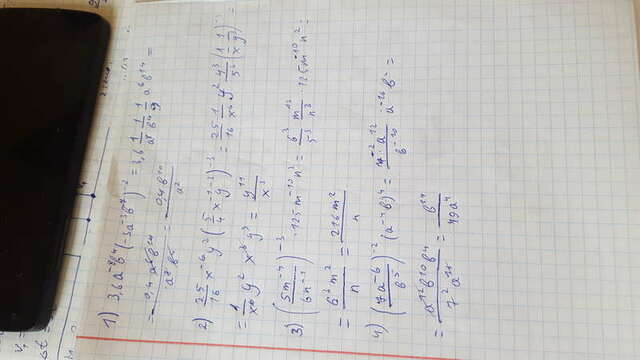 V₁
Δt =
1) 3,6a⁻⁸b⁴(-3a⁻³b⁷)⁻² = 3,6 1/a⁸ 1/b⁴ 1/9 a⁶b¹⁴ =
= 0,4 a⁶b¹⁴/a⁸b⁴ = 0,4b¹⁰/a²
2) 25/16 x⁻⁶y²(5/4 x⁻¹y⁻³)⁻³ = 25/16 1/x⁶ y² 4³/5³ (1/x 1/y³)⁻³ =
= 1/x⁶ y² x³y⁹ = y¹¹/x³
3) (5m⁻⁴/6n⁻¹)⁻³ · 125m⁻¹⁰n² = 6³/5³ m¹²/n³ · 125m⁻¹⁰n² =
= 6³m²/n = 216m²/n
4) (7a⁻⁶/b⁵)⁻² (a⁻⁴b)⁴ = 7⁻²a¹²/b⁻¹⁰ a⁻¹⁶b⁴ =
= a¹²b¹⁰b⁴/7²a¹⁶ = b¹⁴/49a⁴